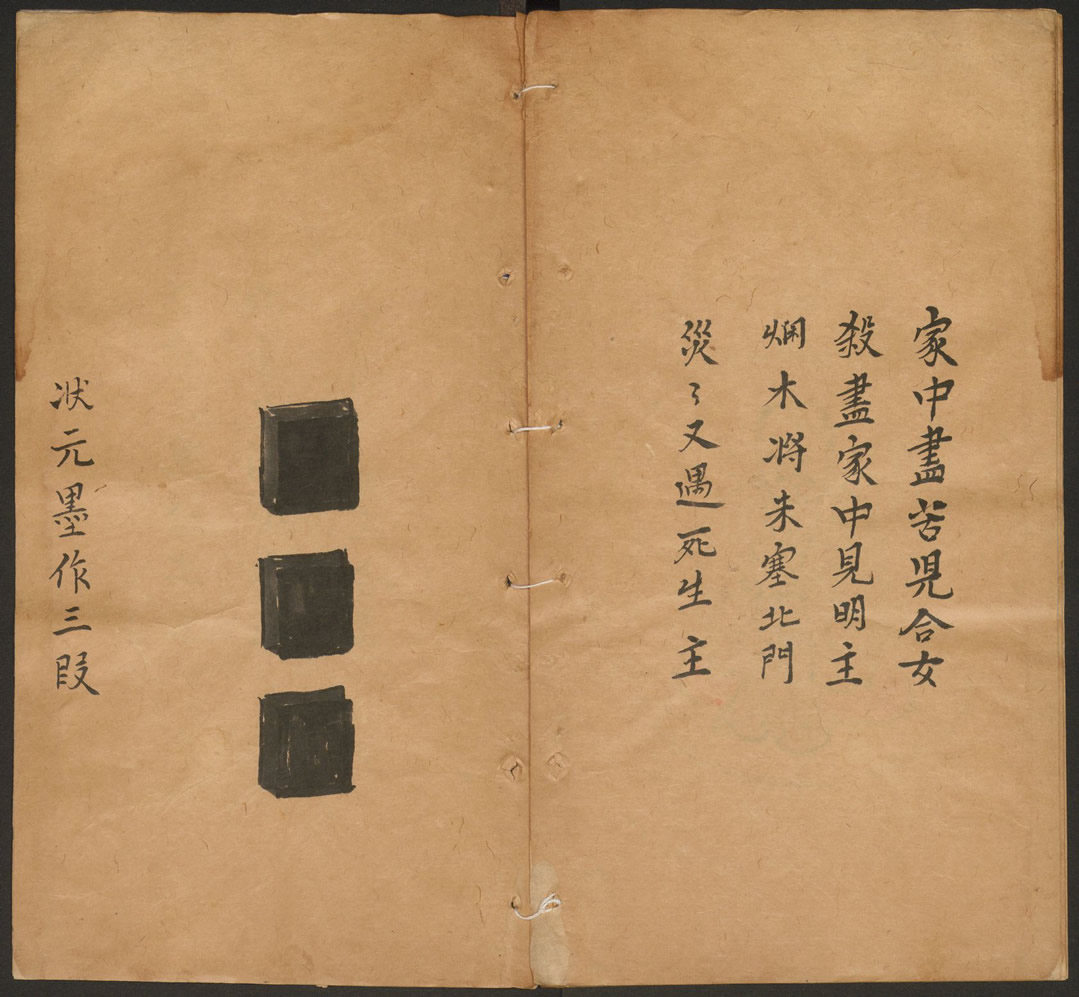 家中盡苦児合女
殺盡家中見明主
爛木将未塞北門
災〻又遇死生主
狀元墨作三段